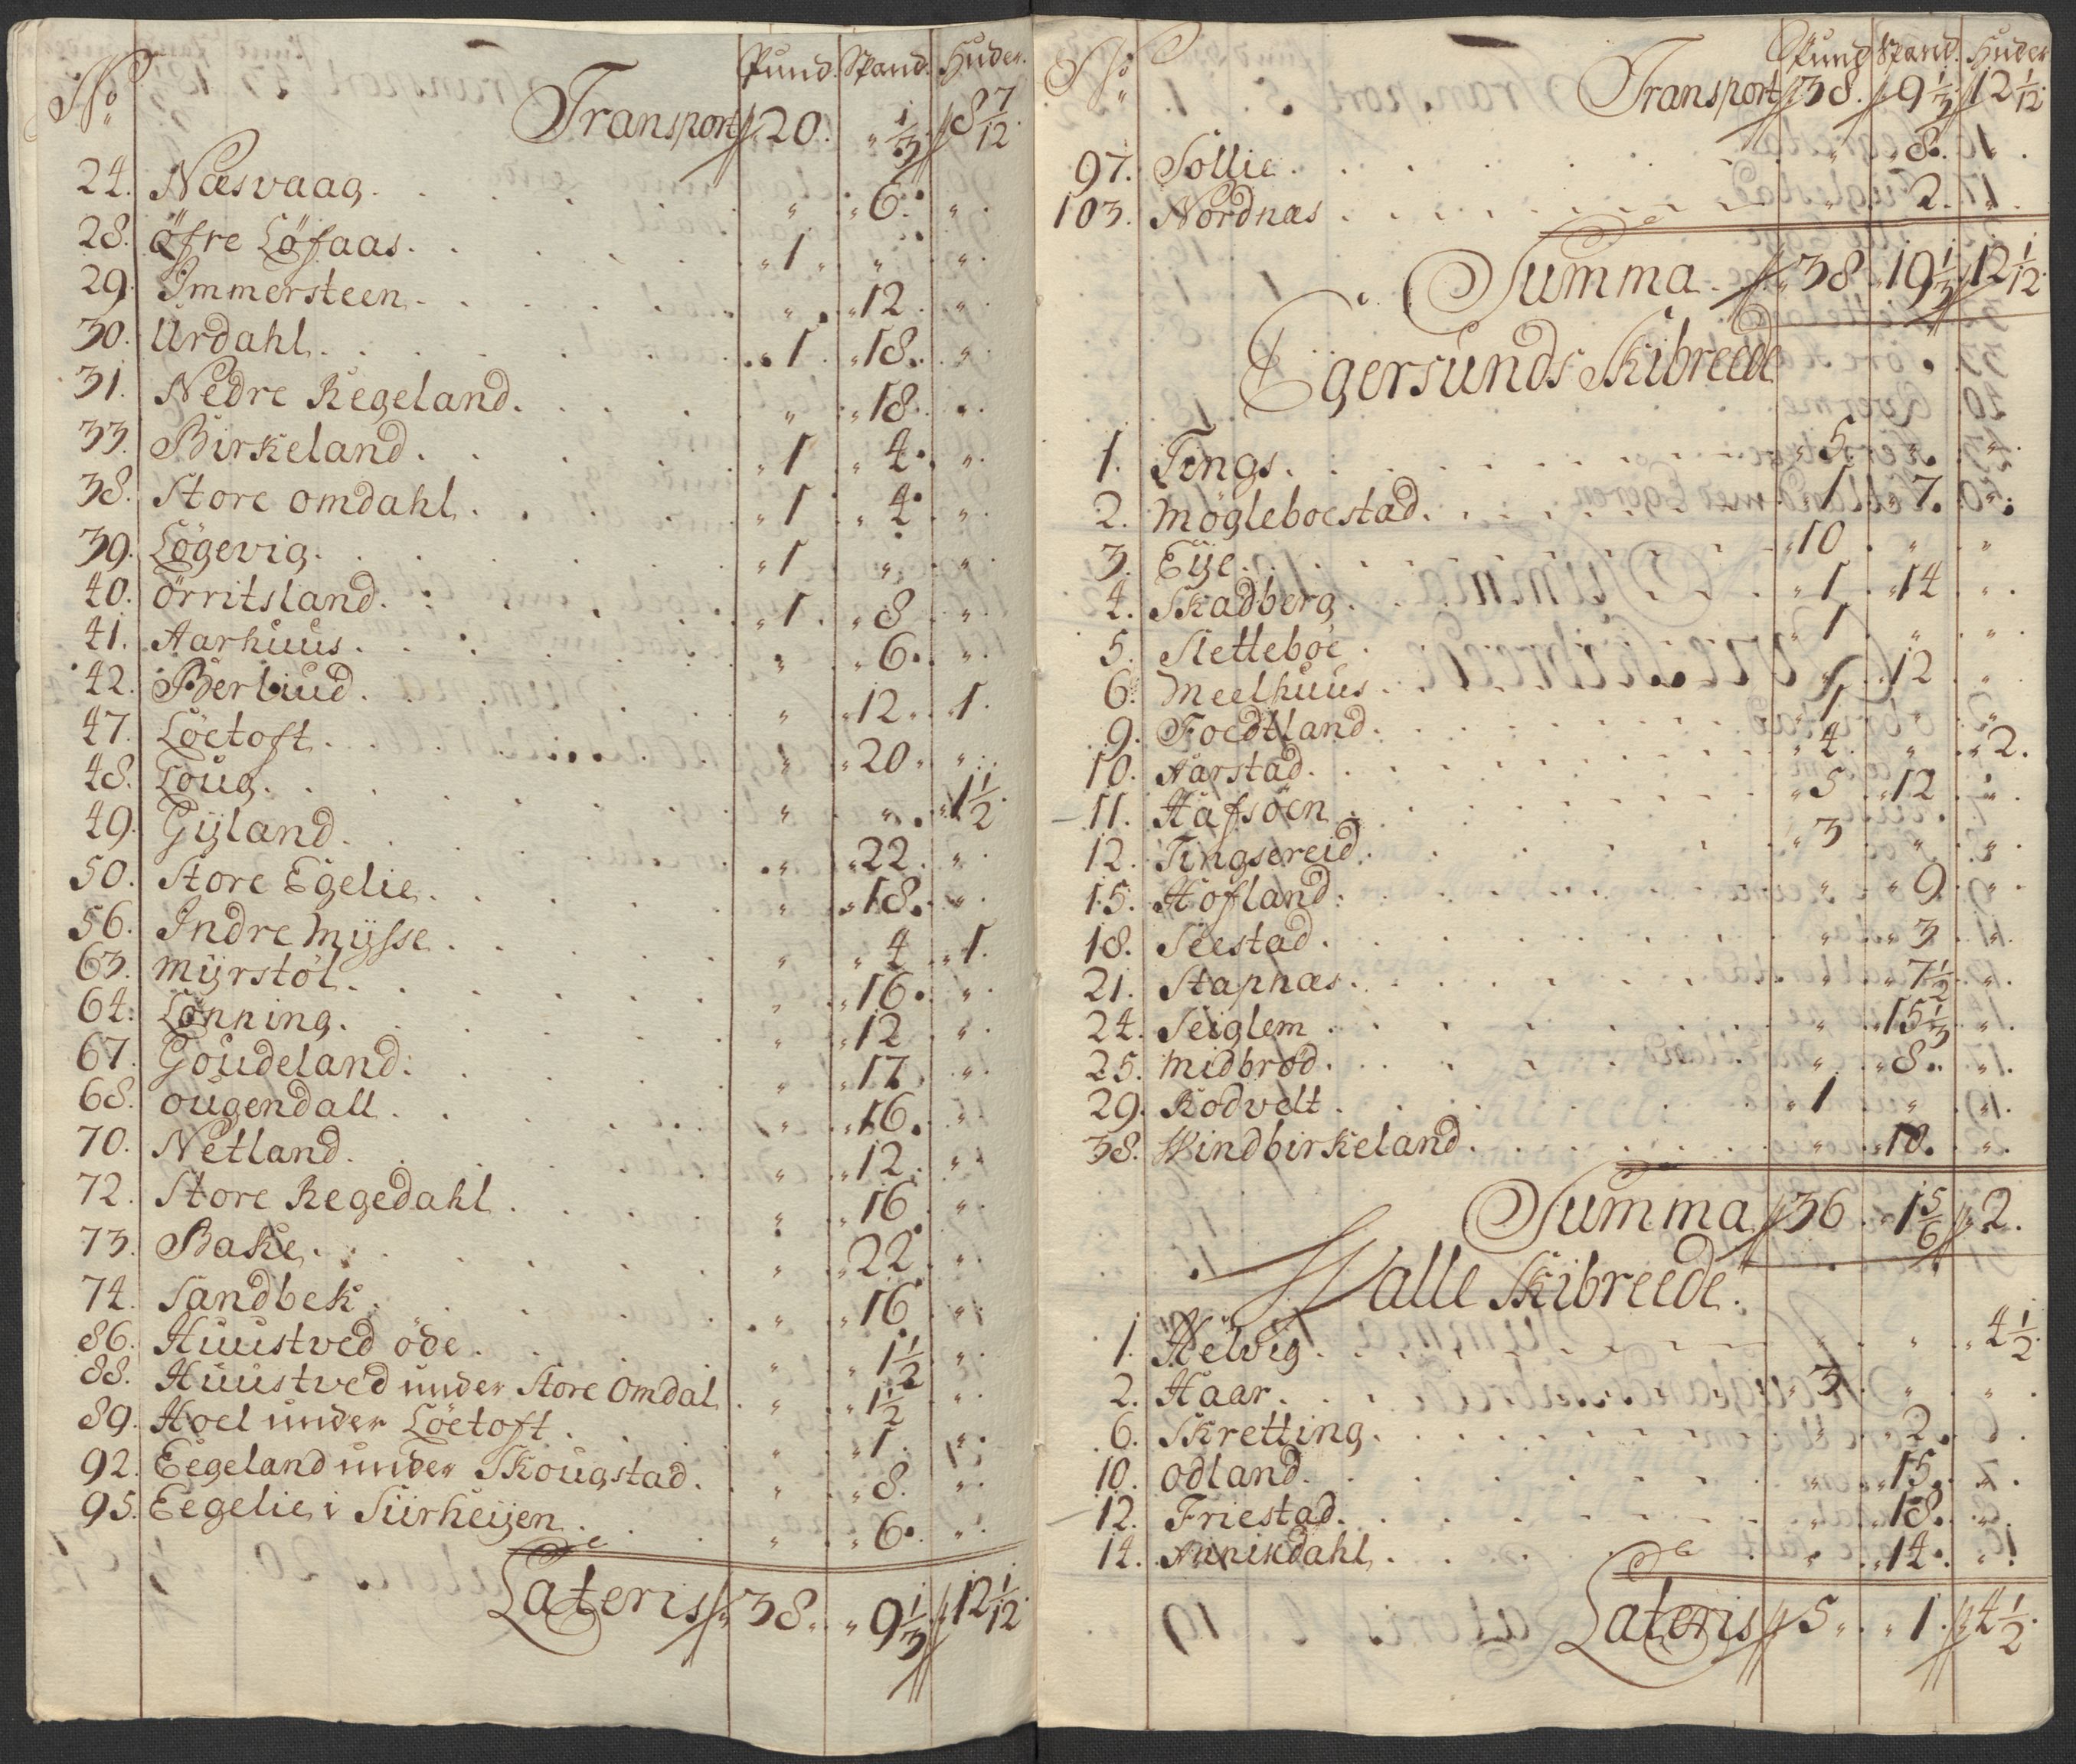 No. Pund. Spand. Huder.
Transport 20. „ 1/3 8 7/12.
24. Næsvaag. „ 6. „
28. öfre Löfaas. „ 1 „ „
29. Immersteen. „ 12. „
30. Urdahl. 1. 18. „
31. Nedre Regeland. „ 18. „
33. Birkeland. 1 4. „
38. Store omdahl. 1 4. „
39. Lögevig. 1 „ „
40. örritsland. 1. 8. „
41. Aarhuus. „ 6. „
42. Berliud. „ 12. 1.
47. Löetoft. „ 20. „
48. Loug. „ „ 1 1/2.
49. Gÿland. „ 22. „
50. Store Egelie. „ 18. „
56. Indre Mÿsse. „ 4 1.
63. Mÿrstöl. „ 16. „
64. Lönning. „ 12 „
67. Goudeland. „ 17. „
68. ougendall. „ 16. „
70. Netland. „ 12. „
72. Store Regedahl. „ 16 „
73. Bakie. „ 22 „
74. Sandbek. „ 16 „
86. Huustved öde. „ 1 1/2. „
88. Huustved under Store Omdal „ 1 1/2 „
89. Hoel under Löetoft. „ 1. „
92. Eegeland under Skougstad. „ 8. „
95. Eegelie i Siirheijen. „ 6. „
Lateris 38. 9 1/3 12 1/12.
No. Pund Spand. Huder
Transport 38. 9 1/3 12 1/12.
97. Sollie. „ 8. „
103. Nordnæs. „ 2. „
Summa. 38. 19 1/3 12 1/12.
Egersunds Skibreede
1. Tengs. 5. „ „
2. Mögleboestad. 1 7. „
3. Eije. 10. „ „
4. Skadberg. 1 14 „
5. Sletteboe. 1 „ „
6. Meelhuus. „ 12 „
9. Foedtland. 1 „ „
10. Aarstad. 4. „ 2.
11. Hafsöen. 5 12 „
12. Tingsereid. 3 „ „
15. Hofland. „ 9. „
18. Seestad. „ 3 „
21. Stapnæs. „ 7 1/2 „
24. Seiglem. „ 15 1/3 „
25. Midbröd. „ 8. „
29. Rodvelt. 1 „ „
38. Windbirkeland. „ 10. „
Summa 36. 1 5/6 2.
Walle Skibreede.
1. Helvig. „ „ 4 1/2.
2. Haar. 3 „ „
6. Skretting. „ 2. „
10. odland. „ 15. „
12. Friestad. „ 18. „
14. Anikdahl. „ 14. „
Lateris 5. 1. 4 1/2.